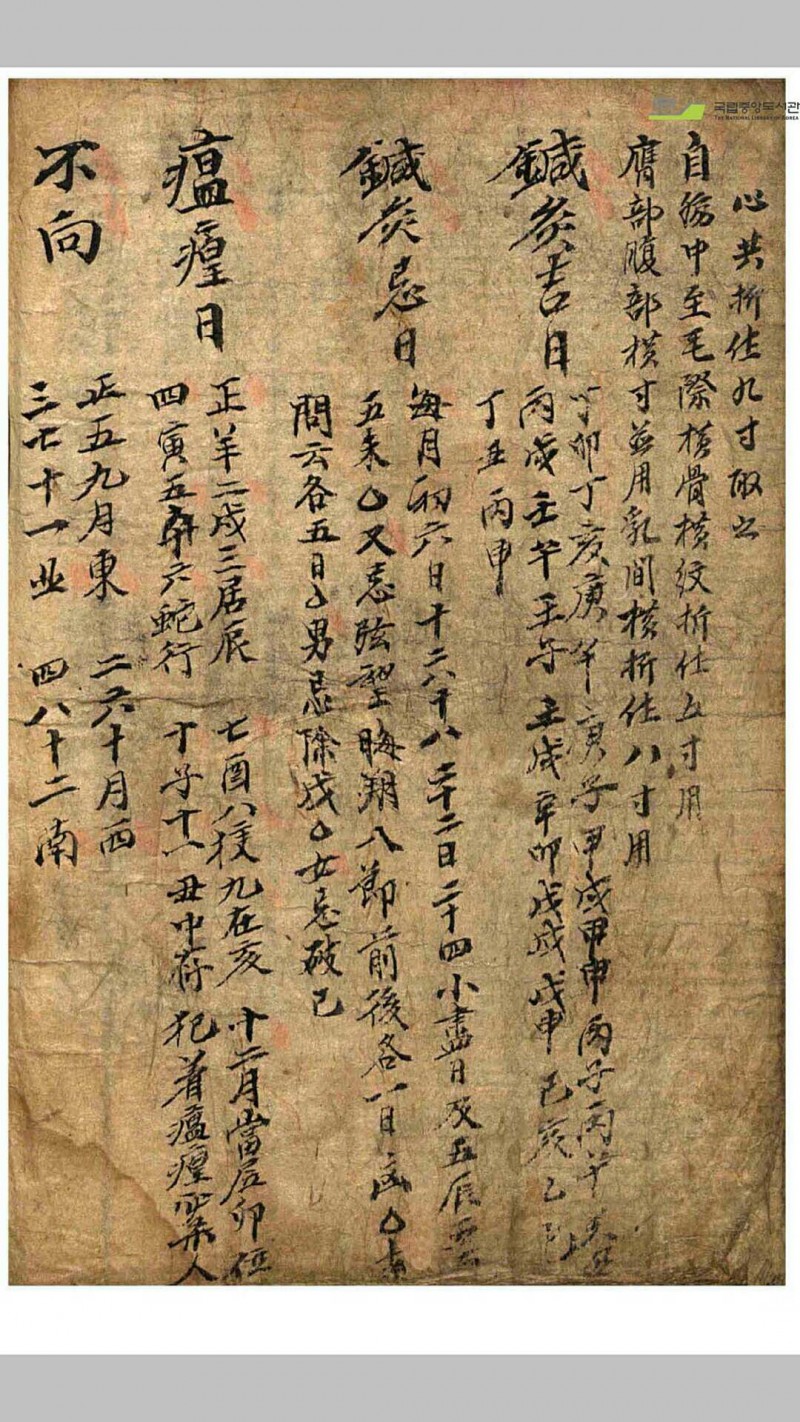 국립중앙도서관
THE NATIONAL LIBRARY OF KOREA
心共折作九寸取之
自臍中至毛際横骨横紋折作五寸用
膺部腹部横寸並用乳間横折作八寸用
鍼灸吉日
丁卯丁亥庚午庚子甲戌甲申丙子丙午
丙戌壬午壬子壬戌辛卯戊戌戊申己亥乙巳
丁丑丙申
鍼灸忌日
每月初六日十六十八二十二日二十四小盡日及五辰
五未又忌弦望晦朔八節前後各一日
問云各五日男忌除戌女忌破巳
瘟㾮日
正羊二戌三居辰 七酉八 九在亥 十二月當居卯位
四寅五午六蛇行 十子十一丑中存 犯着瘟㾮 人
不向
正五九月東 二六十月西
三七十一北 四八十二南